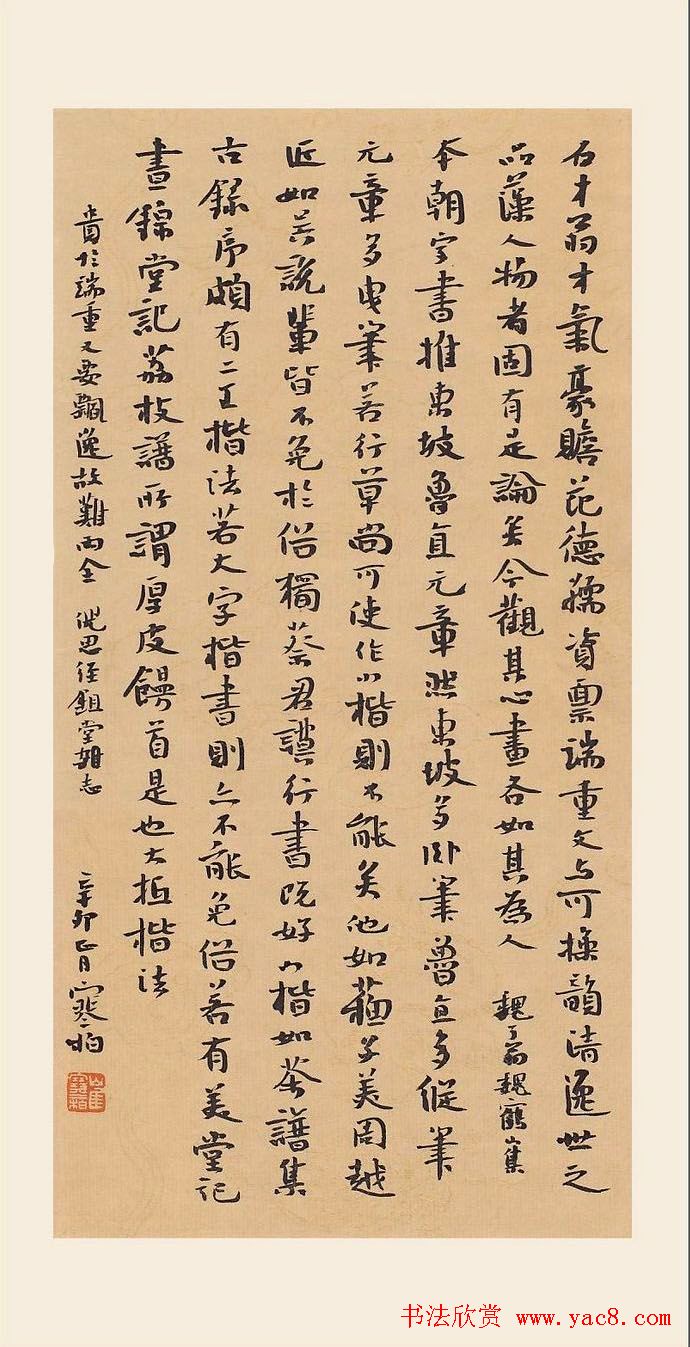 石才翁才氣豪贍范德孺資稟端重文与可操韻清逸世之
品藻人物者固有是論矣今觀其心畫各如其為人 魏了翁魏鶴山集
本朝字書推東坡魯直元章然東坡多卧筆魯直多縱筆
元章多曳筆若行草尚可使作小楷則不能矣他如蘇子美周越
近如吴說輩皆不免於俗獨蔡君謨行書既好小楷如茶譜集
古錄序頗有二王楷法若大字楷書則亦不能免俗若有美堂記
晝錦堂記荔枝譜所謂厚皮饅首是也大抵楷法
貴於端重又要飄逸故難两全 倪思經鉏堂雜志
辛卯正月寒柏
书法欣赏 www.yac8.com